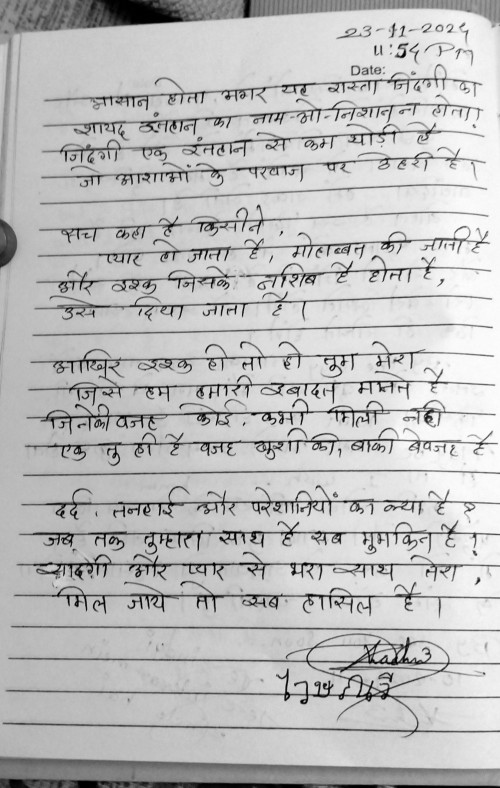 23-11-2024
11:54 PM
Date:
आसान होता अगर यह रास्ता जिंदगी का
शायद इंतहान का नाम-ओ-निशान न होता!
जिंदगी एक इंतहान से कम थोड़ी है
जो आशाओं के परवाज पर ठेहरी है।
सच कहा है किसीने,
प्यार हो जाता है, मोहाब्बत की जाती है
और इश्क जिसके नशिब है होता है,
उसे दिया जाता है।
आखिर इश्क ही तो हो तुम मेरा
जिसे हम हमारी इबादत मानत है
जिनेकी वजह कोई कभी मिली नही
एक तु ही है वजह खुशी की, बाकी बेवजह है
दर्द, तनहाई और परेशानियों का क्या है ?
जब तक तुम्हारा साथ है सब मुमकिन है !
सादगी और प्यार से भरा साथ तेरा,
मिल जाये तो सब हासिल है।